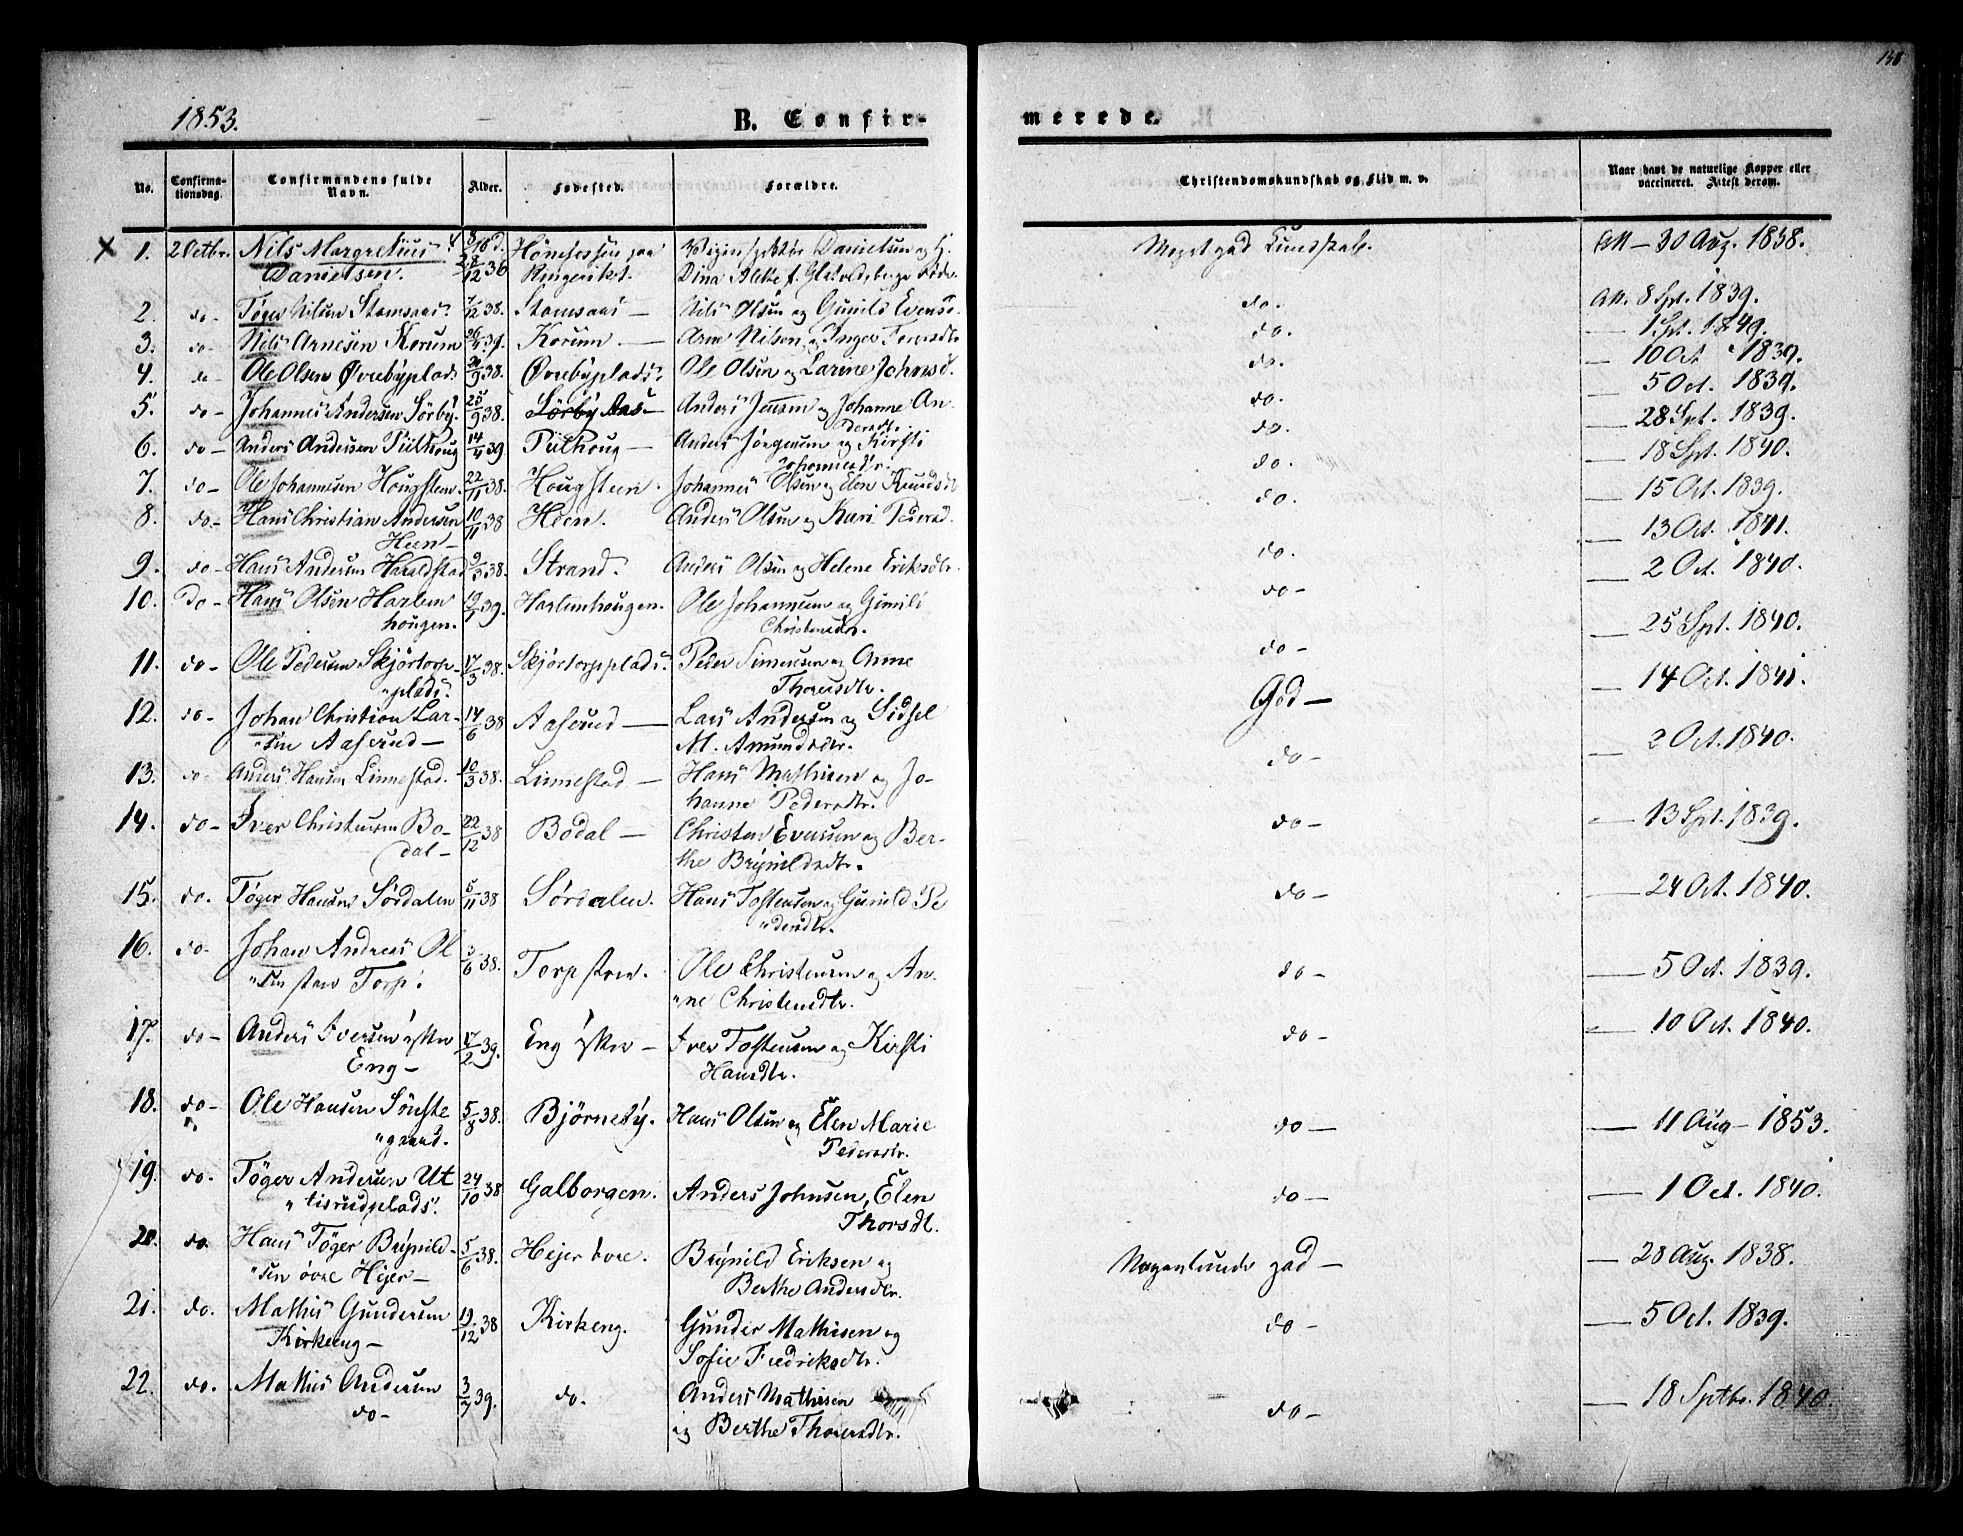 158
1853.
B. Confir-
merede.
No.
Confirma-
tionsdag.
Confirmandens fulde
Navn.
Alder.
Fødested.
Forældre.
Christendomskundskab og Flid m. v.
Naar havt de naturlige Kopper eller
vaccineret. Attest derom.
X 1. 2 Octbr. Nils Margretius Hønefossen paa Danielsen og
Danielsen. 28/12 36 Ringeriket. Dina
Meget god Kundskab. Att — 30 Aug. 1838.
2. do — Tøger Nilsen Stomsaas 7/12 38. Stomsaas — Nils Olsen og Gunild do. Att. 8 Spt. 1839.
3. do — Nils Arnesen Korum Korum. — Arne Nilsen og Inger do. — 1 Spt. 1849.
4. do — Ole Olsen Øvrebyplads 38. Øvrebyplads. Ole Olsen og Larine Johnsd. do. — 10 Oct 1839.
5. do — Johannes Andersen Sørby 25/9 38. Sørby Aas — Anders Jensen og Johanne An-
dersdtr. do. — 5 Oct. 1839.
6. do — Anders Andersen Pillhoug 14/4 39 Pillhoug — Anders Jørgensen og Kirsti
Johannesdtr. do. — 28 Spt. 1839.
7. do — Ole Johannesen Hougsteen. 22/11 38. Hougsteen. Johannes Olsen og Elen Knudsdtr do. — 18 Spt. 1840.
8. do — Hans Christian Andersen 10/11 38 Heen. Anders Olsen og Kari Pedersd. do. — 15 Oct. 1839.
Heen — 13 Oct. 1841.
9. do — Hans Andersen Haraldstad 9/3 38. Strand. Anders Olsen og Helene Eriksdtr. do. — 2 Oct. 1840.
10. Do — Hans Olsen Harlem 39. Harlemhougen. Ole Johannesen og Gunild do —
hougen. Christensdtr. — 25 Spt. 1840.
11. do — Ole Pedersen Skjørtorp- 17/3 38. Skjørtorpplads. Peder Simensen og Anne do —
"plads. Thoresdtr. — 14 Oct. 1841.
12. do — Johan Christian Lar- 14/6 38 Aaserud — Lars Andersen og Sidsel God —
"sen Aaserud — M. Amundsdtr. — 2 Oct. 1840.
13. do — Anders Hansen Linnestad. 10/3 38. Linnestad — Hans Mathisen og Jo- do —
hanne Pedersdtr.
14. do — Iver Christensen Bo- 22/12 38 Bodal — Christen Evensen og Ber- do — — 13 Spt. 1839.
dal — the Brynildsdtr.
15. do. Tøger Hansen Sørdalen 5/11 38 Sørdalen. Hans Tostensen og Gunild Pe do — — 24 Oct. 1840.
"dersdtr.
16. do — Johan Andreas Ol 3/6 38. Torp Ole Christensen og An- do — — 5 Oct. 1839.
"sen Torp. "ne Christensdtr.
17. do — Anders Iversen 17/2 39. Eng — Iver Tostensen og Kirsti do — — 10 Oct. 1840.
Eng — Hansdtr.
18. do — Ole Hansen Sønste 5/8 38. Bjørneby. Hans Olsen og Elen Marie do — — 11 Aug — 1853.
"gaard. Pedersdtr.
19. do. Tøger Andersen Ut 24/10 38 Galborgen. Anders Johnsen, Elen do — — 1 Oct. 1840.
"tisrudplads. Thorsdt.
20. do Hans Tøger Brynild- 5/6 38. Hejer øvre. Brynild Eriksen og Nogenlunde god — — 28 Aug. 1838.
"sen øvre Hejer — Berthe Andersdtr.
21. do. Mathis Gundersen 19/12 38 Kirkeng. Gunder Mathisen og do — — 5 Oct. 1839.
Kirkeeng — Sofie Fredriksdtr.
22. do. Mathis Andersen 3/7 39. do. Anders Mathisen do — — 18 Sptbr. 1840.
do — og Berthe Thoresdtr.